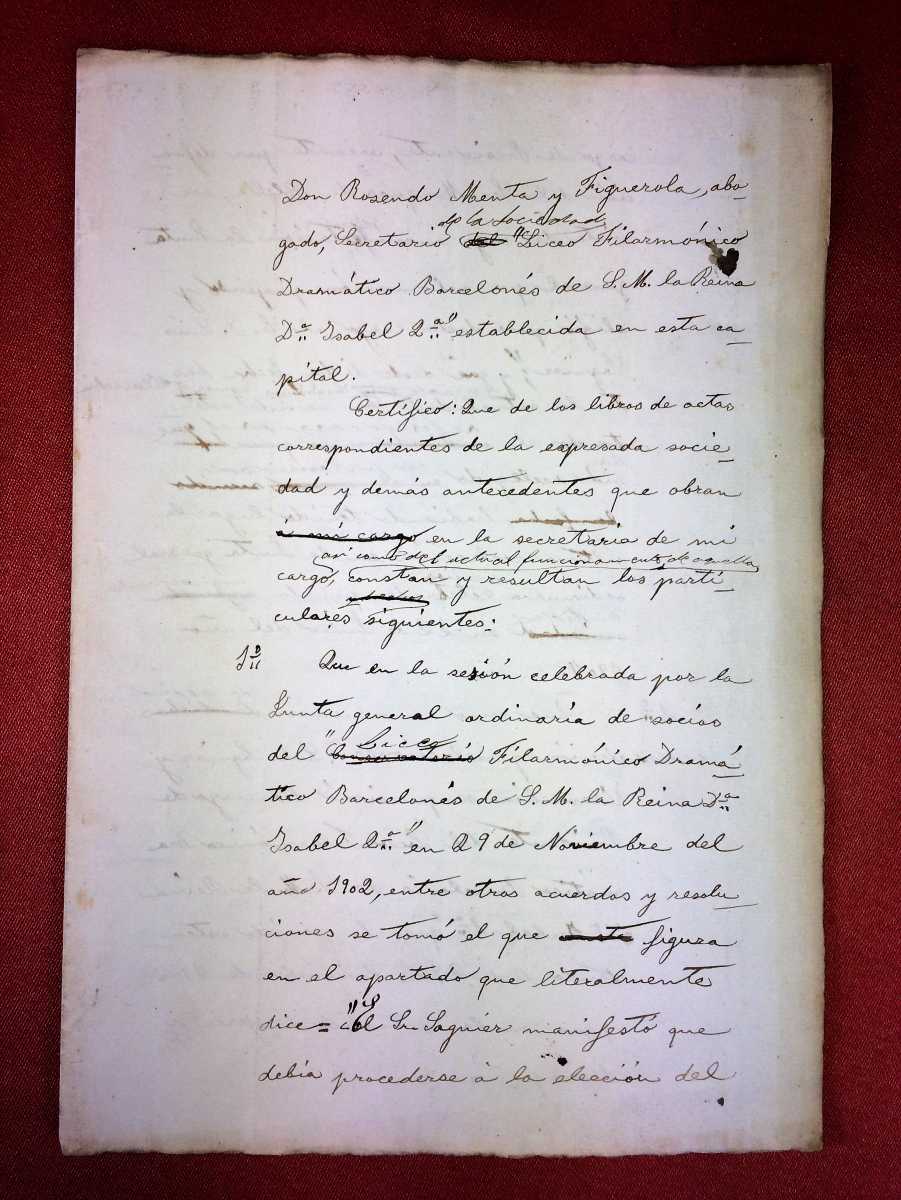 Don Rosendo Menta y Figuerola, abo-
de la sociedad
gado, Secretario del "Liceo Filarmónico
Dramático Barcelonés de S. M. la Reina
Dª Isabel 2ª" establecida en esta ca-
pital.
Certifico: Que de los libros de actas
correspondientes de la expresada socie-
dad y demás antecedentes que obran
á mi cargo en la secretaría de mi
así como del actual funcionamiento de aquella
cargo, constan y resultan los parti-
culares siguientes:
1º Que en la sesión celebrada por la
Junta general ordinaria de socios
Liceo
del "Conservatorio Filarmónico Dramá-
tico Barcelonés de S. M. la Reina Dª
Isabel 2ª" en 29 de Noviembre del
año 1902, entre otros acuerdos y resolu-
ciones se tomó el que figura
en el apartado que literalmente
dice = "El Sr Saguier manifestó que
debía procederse á la elección del